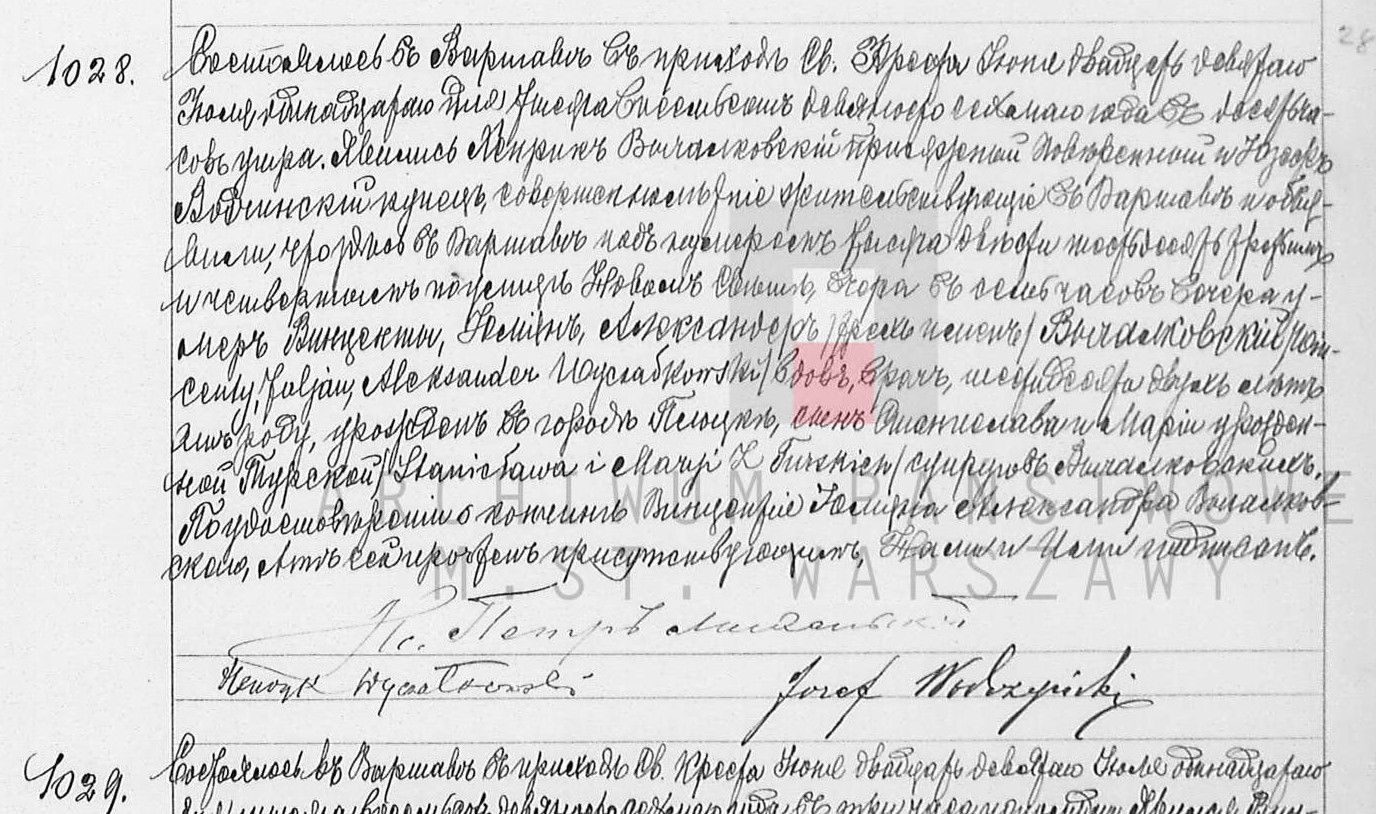 1028.
Состоялось въ Варшавѣ въ приходѣ Св. Креста Іюня двадцать девятаго
Іюля одиннадцатаго дня тысяча восемьсотъ девяносто седьмаго года въ десять ча-
совъ утра. Явились Генрикъ Выча­лковскій присяжный повѣренный и Юзефъ
Водзинскій купецъ, совершеннолѣтніе жительствующіе въ Варшавѣ и объя-
вили, что вчера въ Варшавѣ подъ номеромъ тысяча двѣсти шестьдесятъ третьимъ
и четвертымъ по улицѣ Новомъ Свѣтѣ, вчера въ семь часовъ вечера у-
меръ Винценты, Юліянъ, Александеръ /трехъ именъ/ Вычалковскій /Win-
centy, Juljan, Aleksander Wyczałkowski/ вдовъ, врачъ, шестьдесяти двухъ лѣтъ
отъ роду, урожденъ въ городѣ Плоцкѣ, сынъ Станислава и Маріи урожден-
ной Турской /Stanisława i Maryi z Turskich/ супруговъ Вычалковскихъ.
По удостовѣреніи о кончинѣ Винцентія Юліяна Александра Вычалков-
скаго, Актъ сей прочтенъ присутствующимъ, Нами и Ими подписанъ.
ARCHIWUM PAŃSTWOWE
M.ST. WARSZAWY
Кс. Петръ
Henryk Wyczałkowski Józef Wodzyński
1029.
Состоялось въ Варшавѣ въ приходѣ Св. Креста Іюня двадцать девятаго Іюля одиннадцатаго